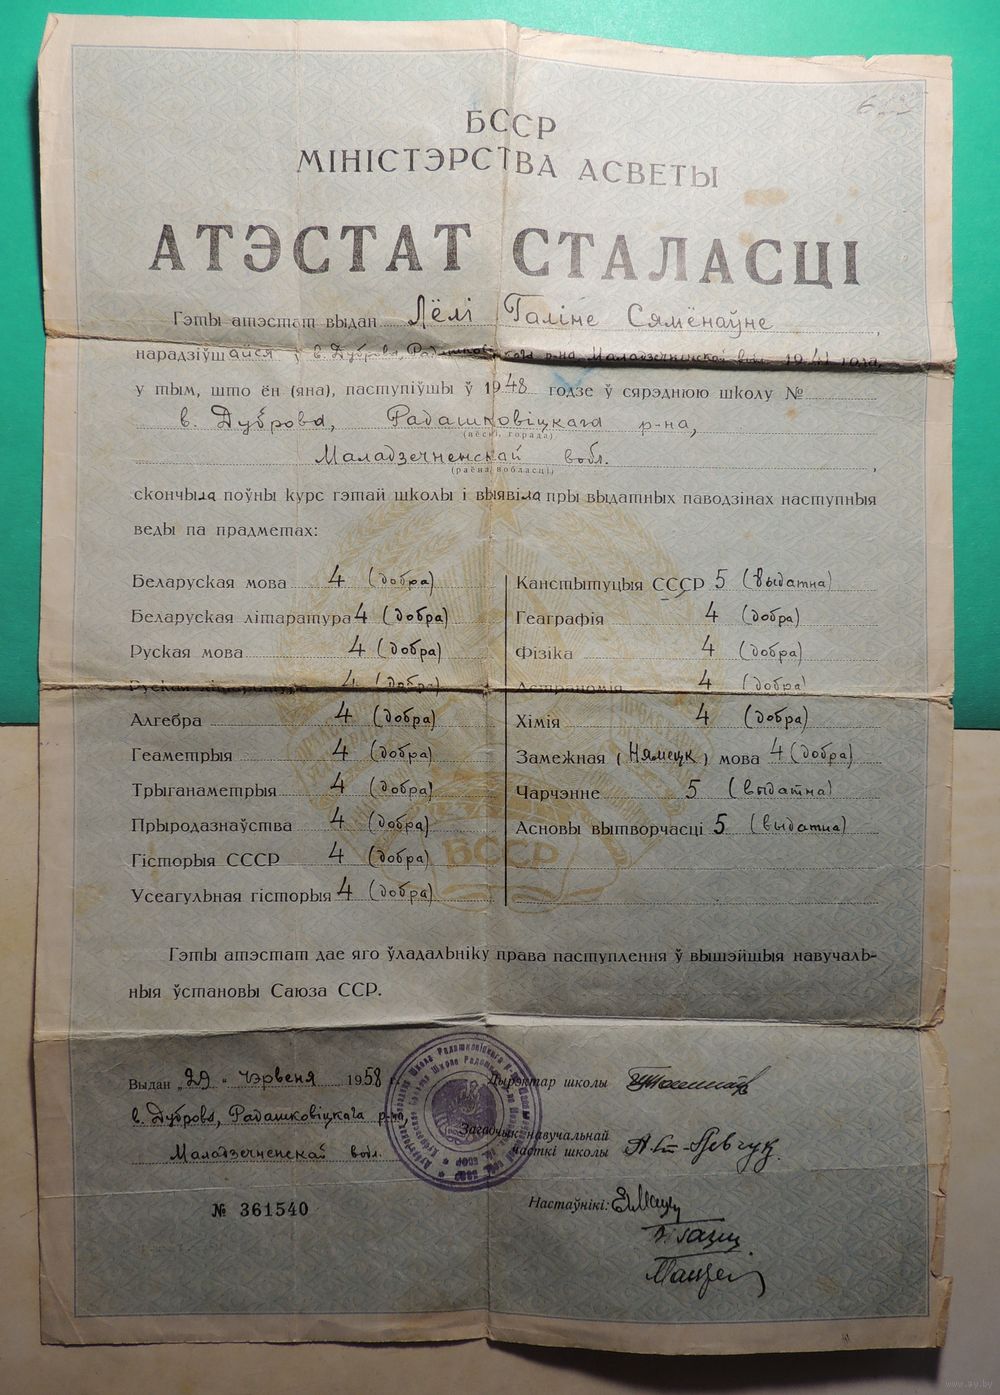 БССР
МІНІСТЭРСТВА АСВЕТЫ
АТЭСТАТ СТАЛАСЦІ
Гэты атэстат выдан Лёлі Галіне Сямёнаўне,
нарадзіўшайся ў в. Дуброва, Радашковіцкага р-на Маладзечненскай вобл. 1941 года,
у тым, што ён (яна), паступіўшы ў 1948 годзе ў сярэднюю школу №
в. Дуброва, Радашковіцкага р-на,
(вёскі, горада)
Маладзечненскай вобл.,
(раёна, вобласці)
скончыла поўны курс гэтай школы і выявіла пры выдатных паводзінах наступныя
веды па прадметах:
Беларуская мова 4 (добра)
Беларуская літаратура 4 (добра)
Руская мова 4 (добра)
Руская літаратура 4 (добра)
Алгебра 4 (добра)
Геаметрыя 4 (добра)
Трыганаметрыя 4 (добра)
Прыродазнаўства 4 (добра)
Гісторыя СССР 4 (добра)
Усеагульная гісторыя 4 (добра)
Канстытуцыя СССР 5 (выдатна)
Геаграфія 4 (добра)
Фізіка 4 (добра)
Астраномія 4 (добра)
Хімія 4 (добра)
Замежная (Нямецк) мова 4 (добра)
Чарчэнне 5 (выдатна)
Асновы вытворчасці 5 (выдатна)
БССР
Гэты атэстат дае яго ўладальніку права паступлення ў вышэйшыя навучаль-
ныя ўстановы Саюза ССР.
Выдан „29" чэрвеня 1958 г.
в. Дуброва, Радашковіцкага р-на,
Маладзечненскай вобл.
№ 361540
Дырэктар школы
Загадчык навучальнай
часткі школы
Настаўнікі:
www.ay.by